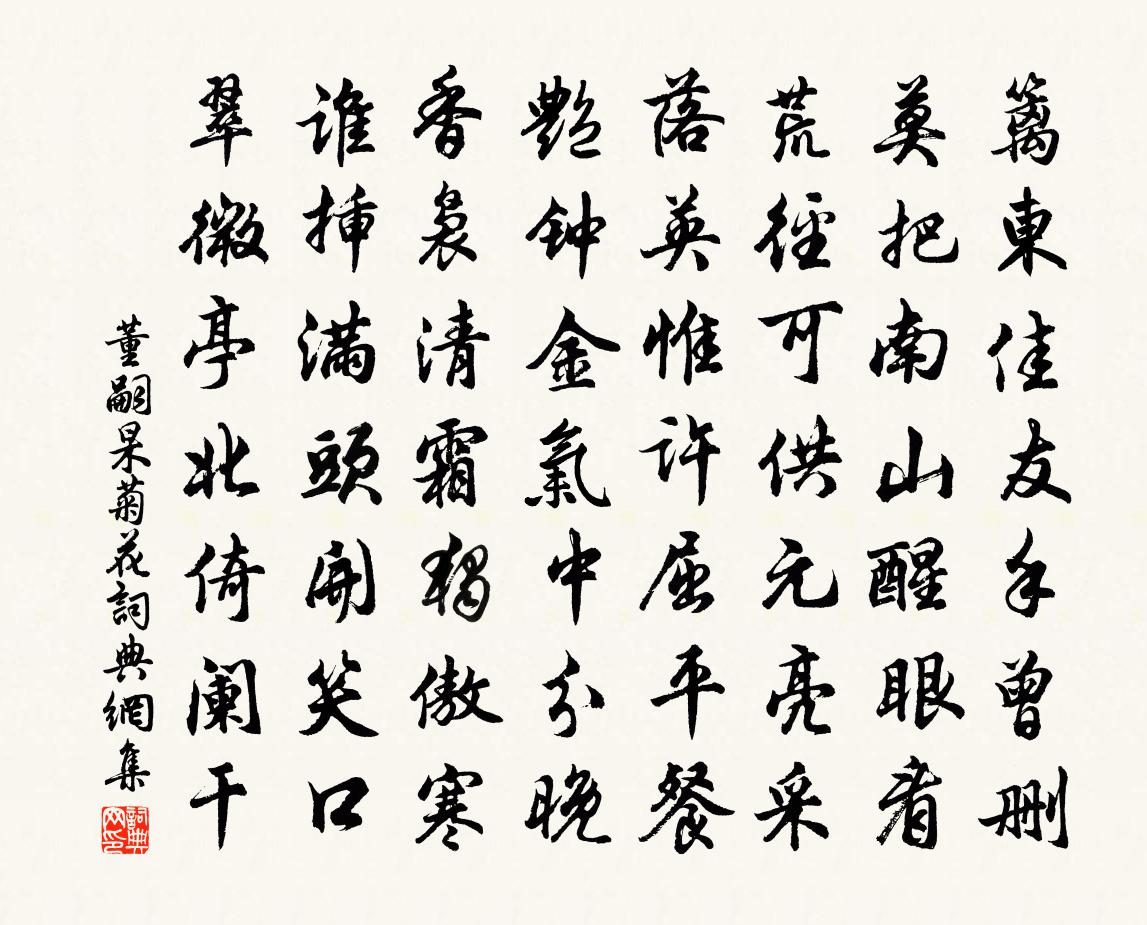 籬東佳友手曾刪
莫把南山醒眼看
荒徑可供元亮采
落英惟許屈平餐
艷钟金氣中分晚
香裊清霜獨傲寒
誰挿滿頭開笑口
翠微亭北倚阑干
董嗣杲菊花詞典網集
詞典网印